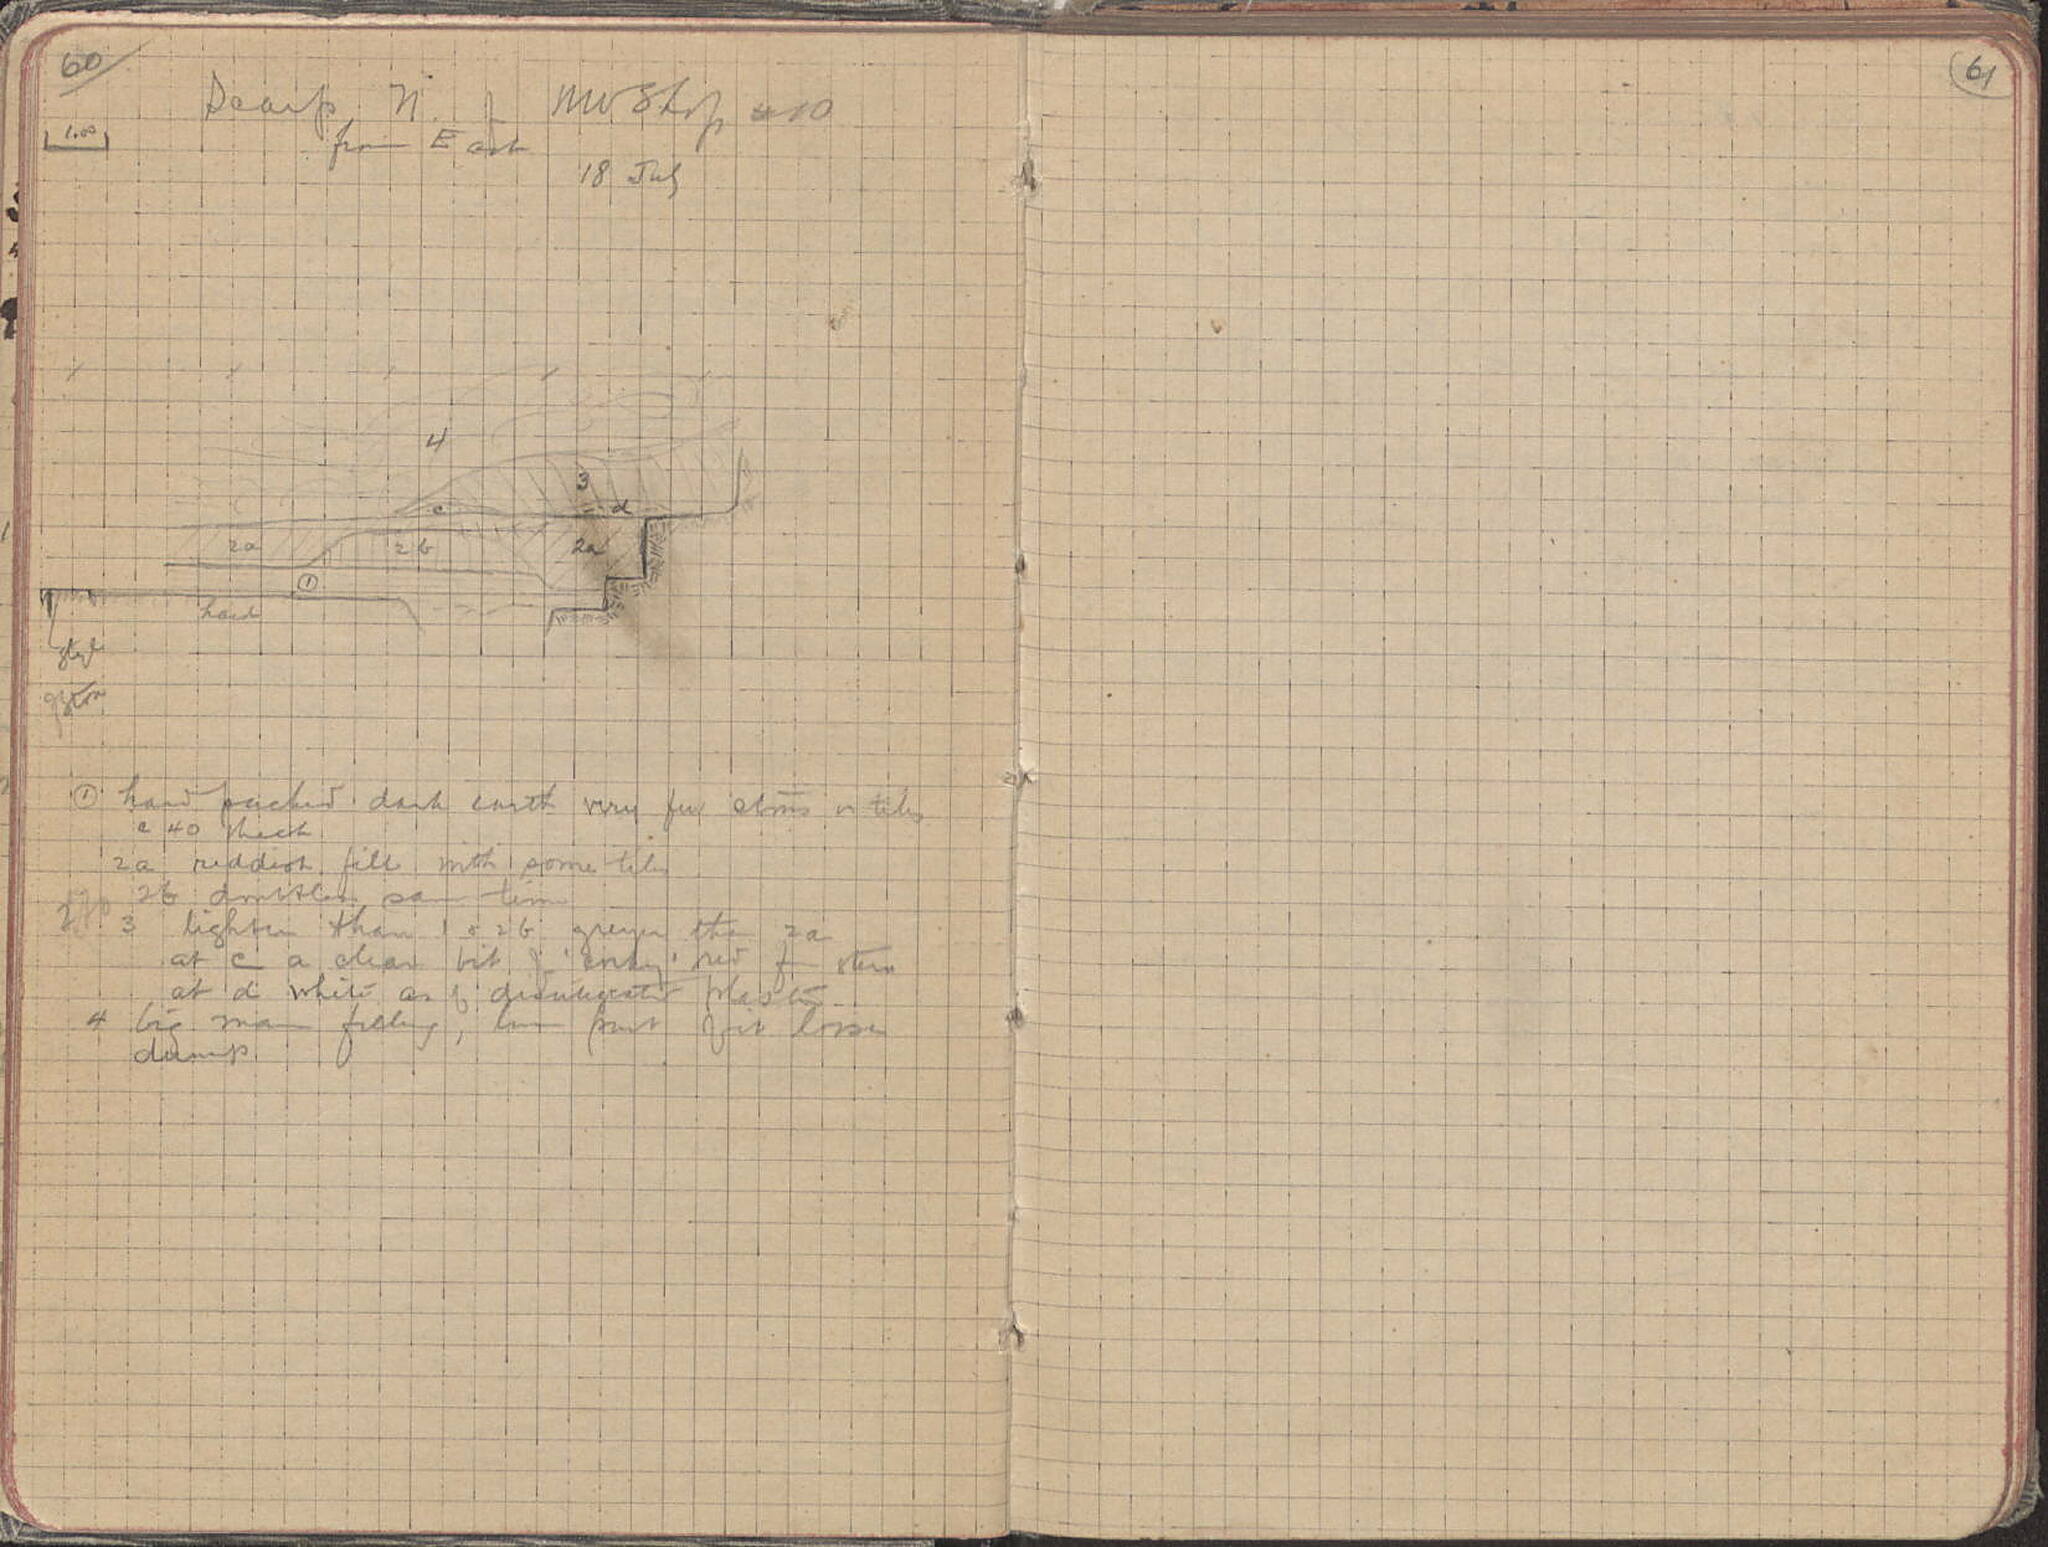 60
Scarp N. of MW Shop 10
from East
1.00
18 July
4
3
c
d
2a
2b
2a
①
hard
① hard packed dark earth very few stones or tiles
c 40 thick
2a reddish fill with some tiles
2b doubtless same time
3 lighter than 1 or 2b greyer than 2a
at c a clear bit of red
at d white as of disintegrated plaster
4 big main filling, lower part of it loose
dump
61